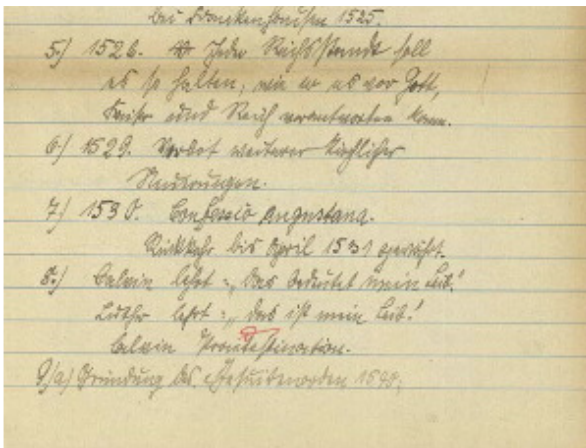 bei Frankenhausen 1525.
5.) 1526. Jeder Reichsstandt soll
es so halten, wie er es vor Gott,
Kaiser und Reich verantworten kann.
6.) 1529. Verbot weiterer kirchlicher
Neuerungen.
7.) 1530. Confessio Augustana.
Rückkehr bis April 1531 gewährt.
8.) Calvin lehrt: „Das bedeutet mein Leib.“
Luther lehrt: „das ist mein Leib.“
Calvin Praedestination.
9.) a) Gründung des Jesuitenorden 1540.